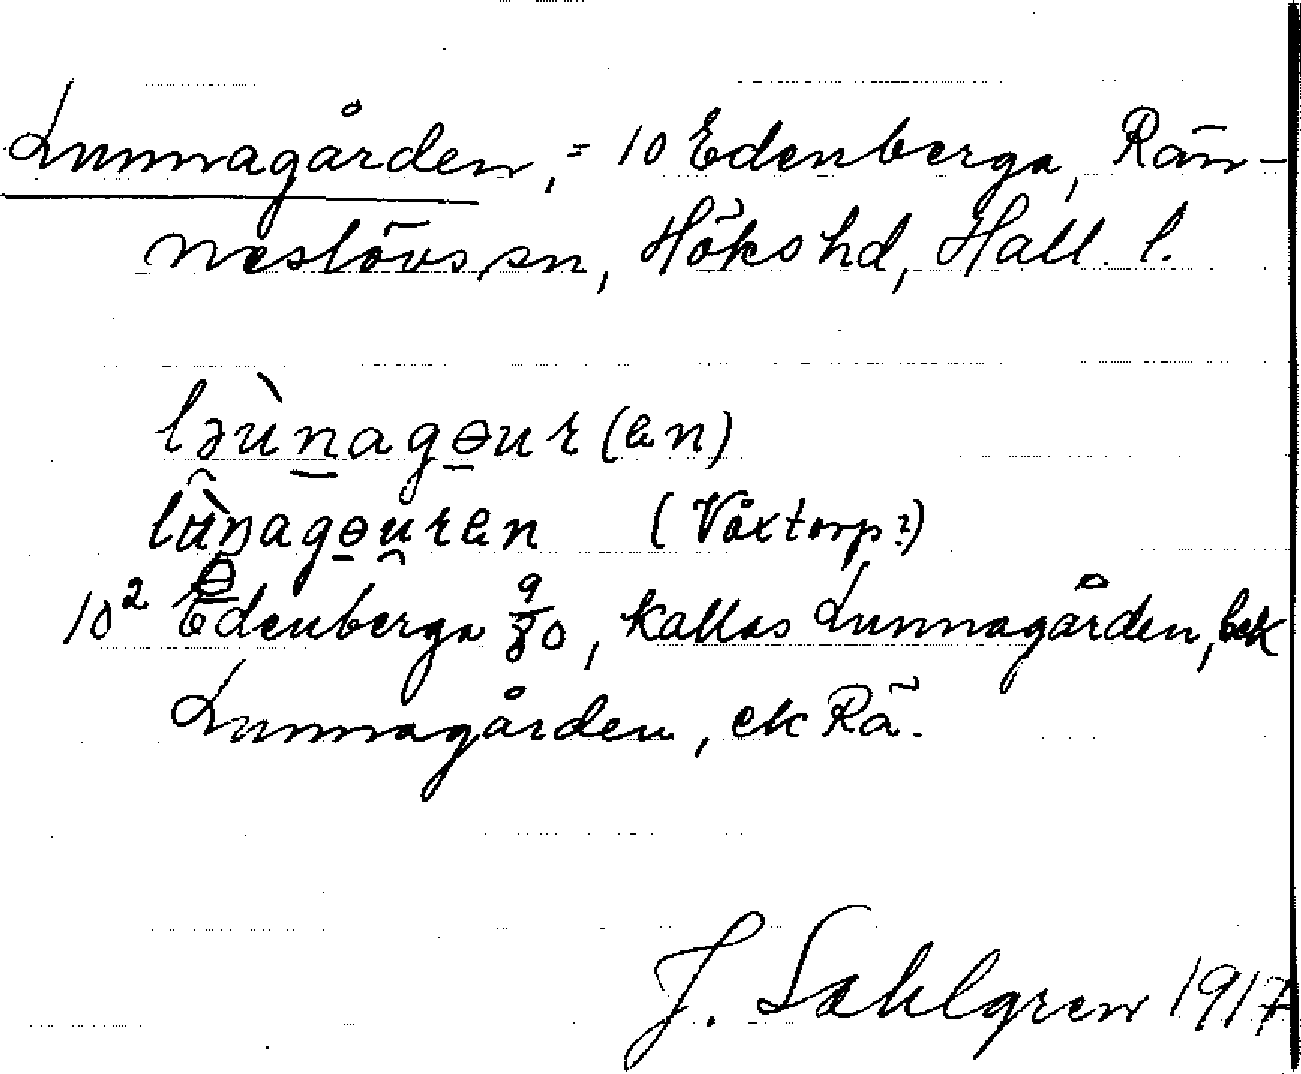 Lunnagården, = 10 Edenberga, Rän-
neslövs sn, Höks hd, Hall. l.
lɜùnagɵur (en)
lùnagɵuren (Våxtorp?)
10² Edenberga 9/80, kallas Lunnagården, bek
Lunnagården, ek Rä.
J. Sahlgren 1917